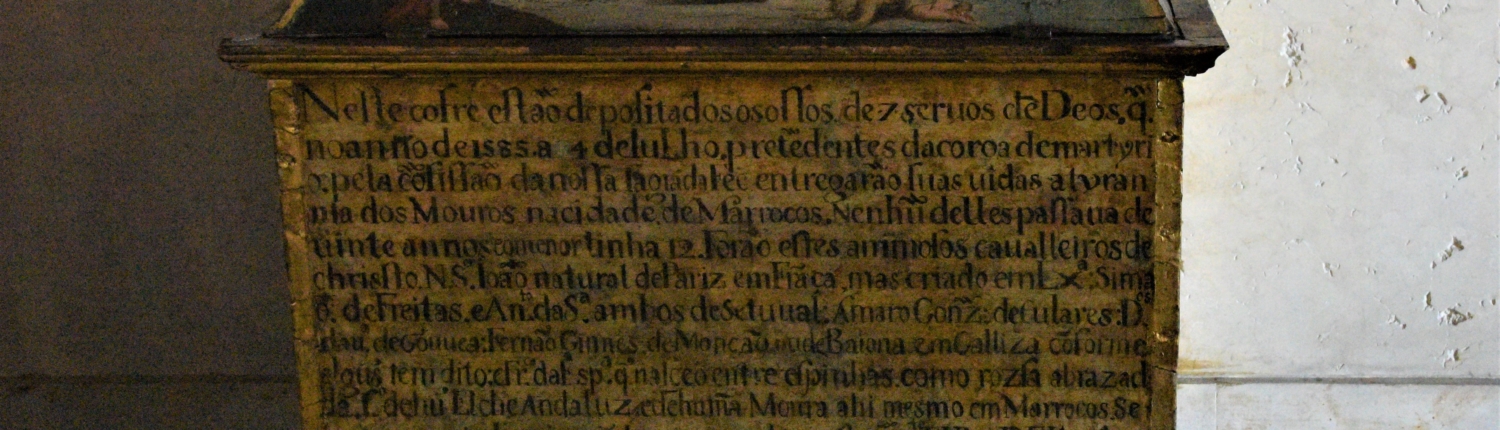 Neste cofre estaõ depositados os ossos. de 7 seruos de Deos, q̃.
no anño de 1585. a 4 de Iulho. pretẽdentes da coroa de martyri
o. pela cõfissaõ da nossa sagrada fee entregaraõ suas uidas a tyran
nia dos Mouros na cidade de Marrocos. Nenhũ delles passaua de
uinte annos eomenor tinha 12. Foraõ estes animosos caualleiros de
christo. N. S. Ioaõ natural de Pariz em Frãça, mas criado em Lxª. Simã
o. de Freitas. e Antº. da Sª. ambos de Setuual: Amaro Gonz̃: de Culares: Dº.
de Gouuea: Fernaõ Ginnes de Monçaõ ou de Baiona em Galliza cõforme
elogus tem dito: q̃. nasceo entre espinhas. como rozsa abrazad
da. F. de hũ Elche Andaluz. e de huma Moura ahi mesmo em Marrocos. Se